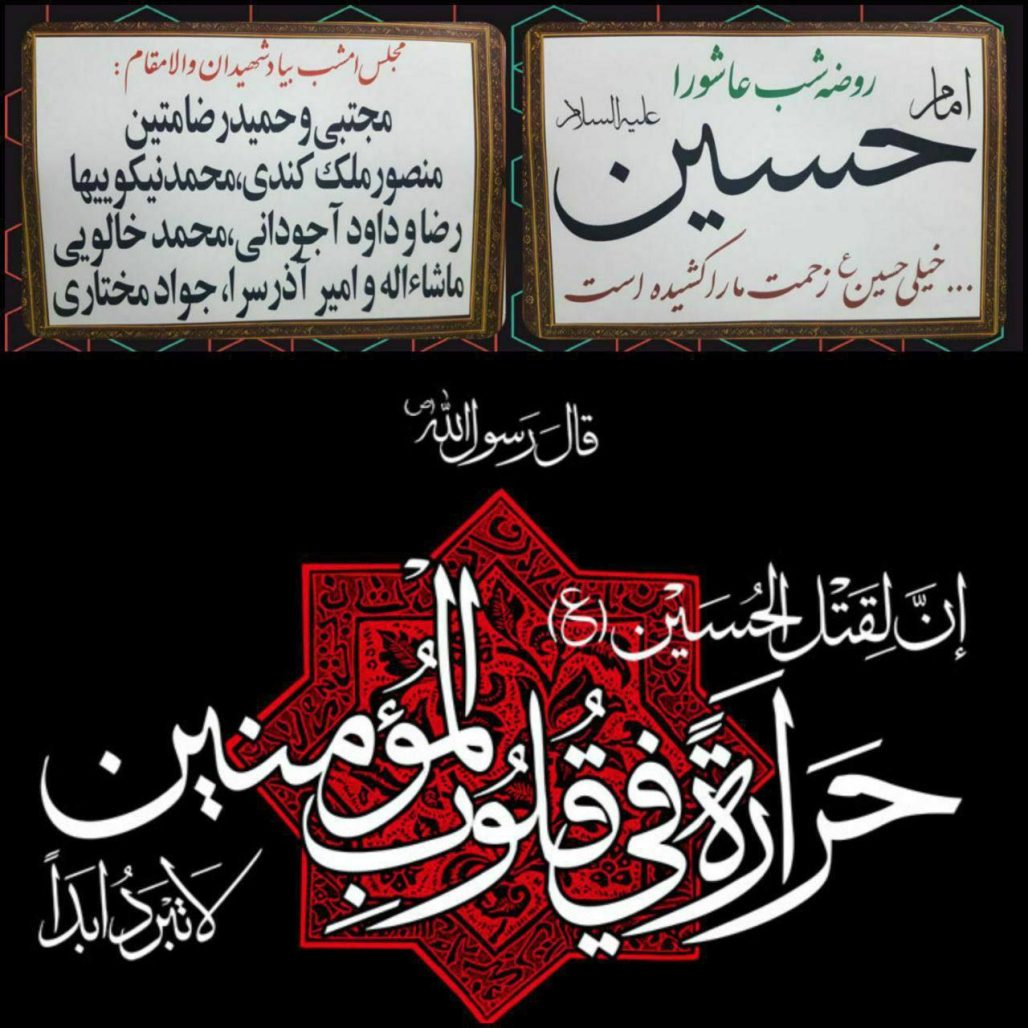 روضه شب عاشورا
امام حسین علیه السلام
... خیلی حسین ع زحمت ما را کشیده است
مجلس امشب بیاد شهیدان والامقام :
مجتبی و حمیدرضا متین
منصور ملک کندی، محمد نیکوییها
رضا و داود آجودانی، محمد خالویی
ماشاءاله و امیر آذرسرا، جواد مختاری
قال رَسول الله (ص)
إنَّ لِقَتْل الحُسَیْن (ع)
حَرَارَةً فی قُلُوبِ الْمُؤمنین
لاَ تَبْرَدُ ابَداً